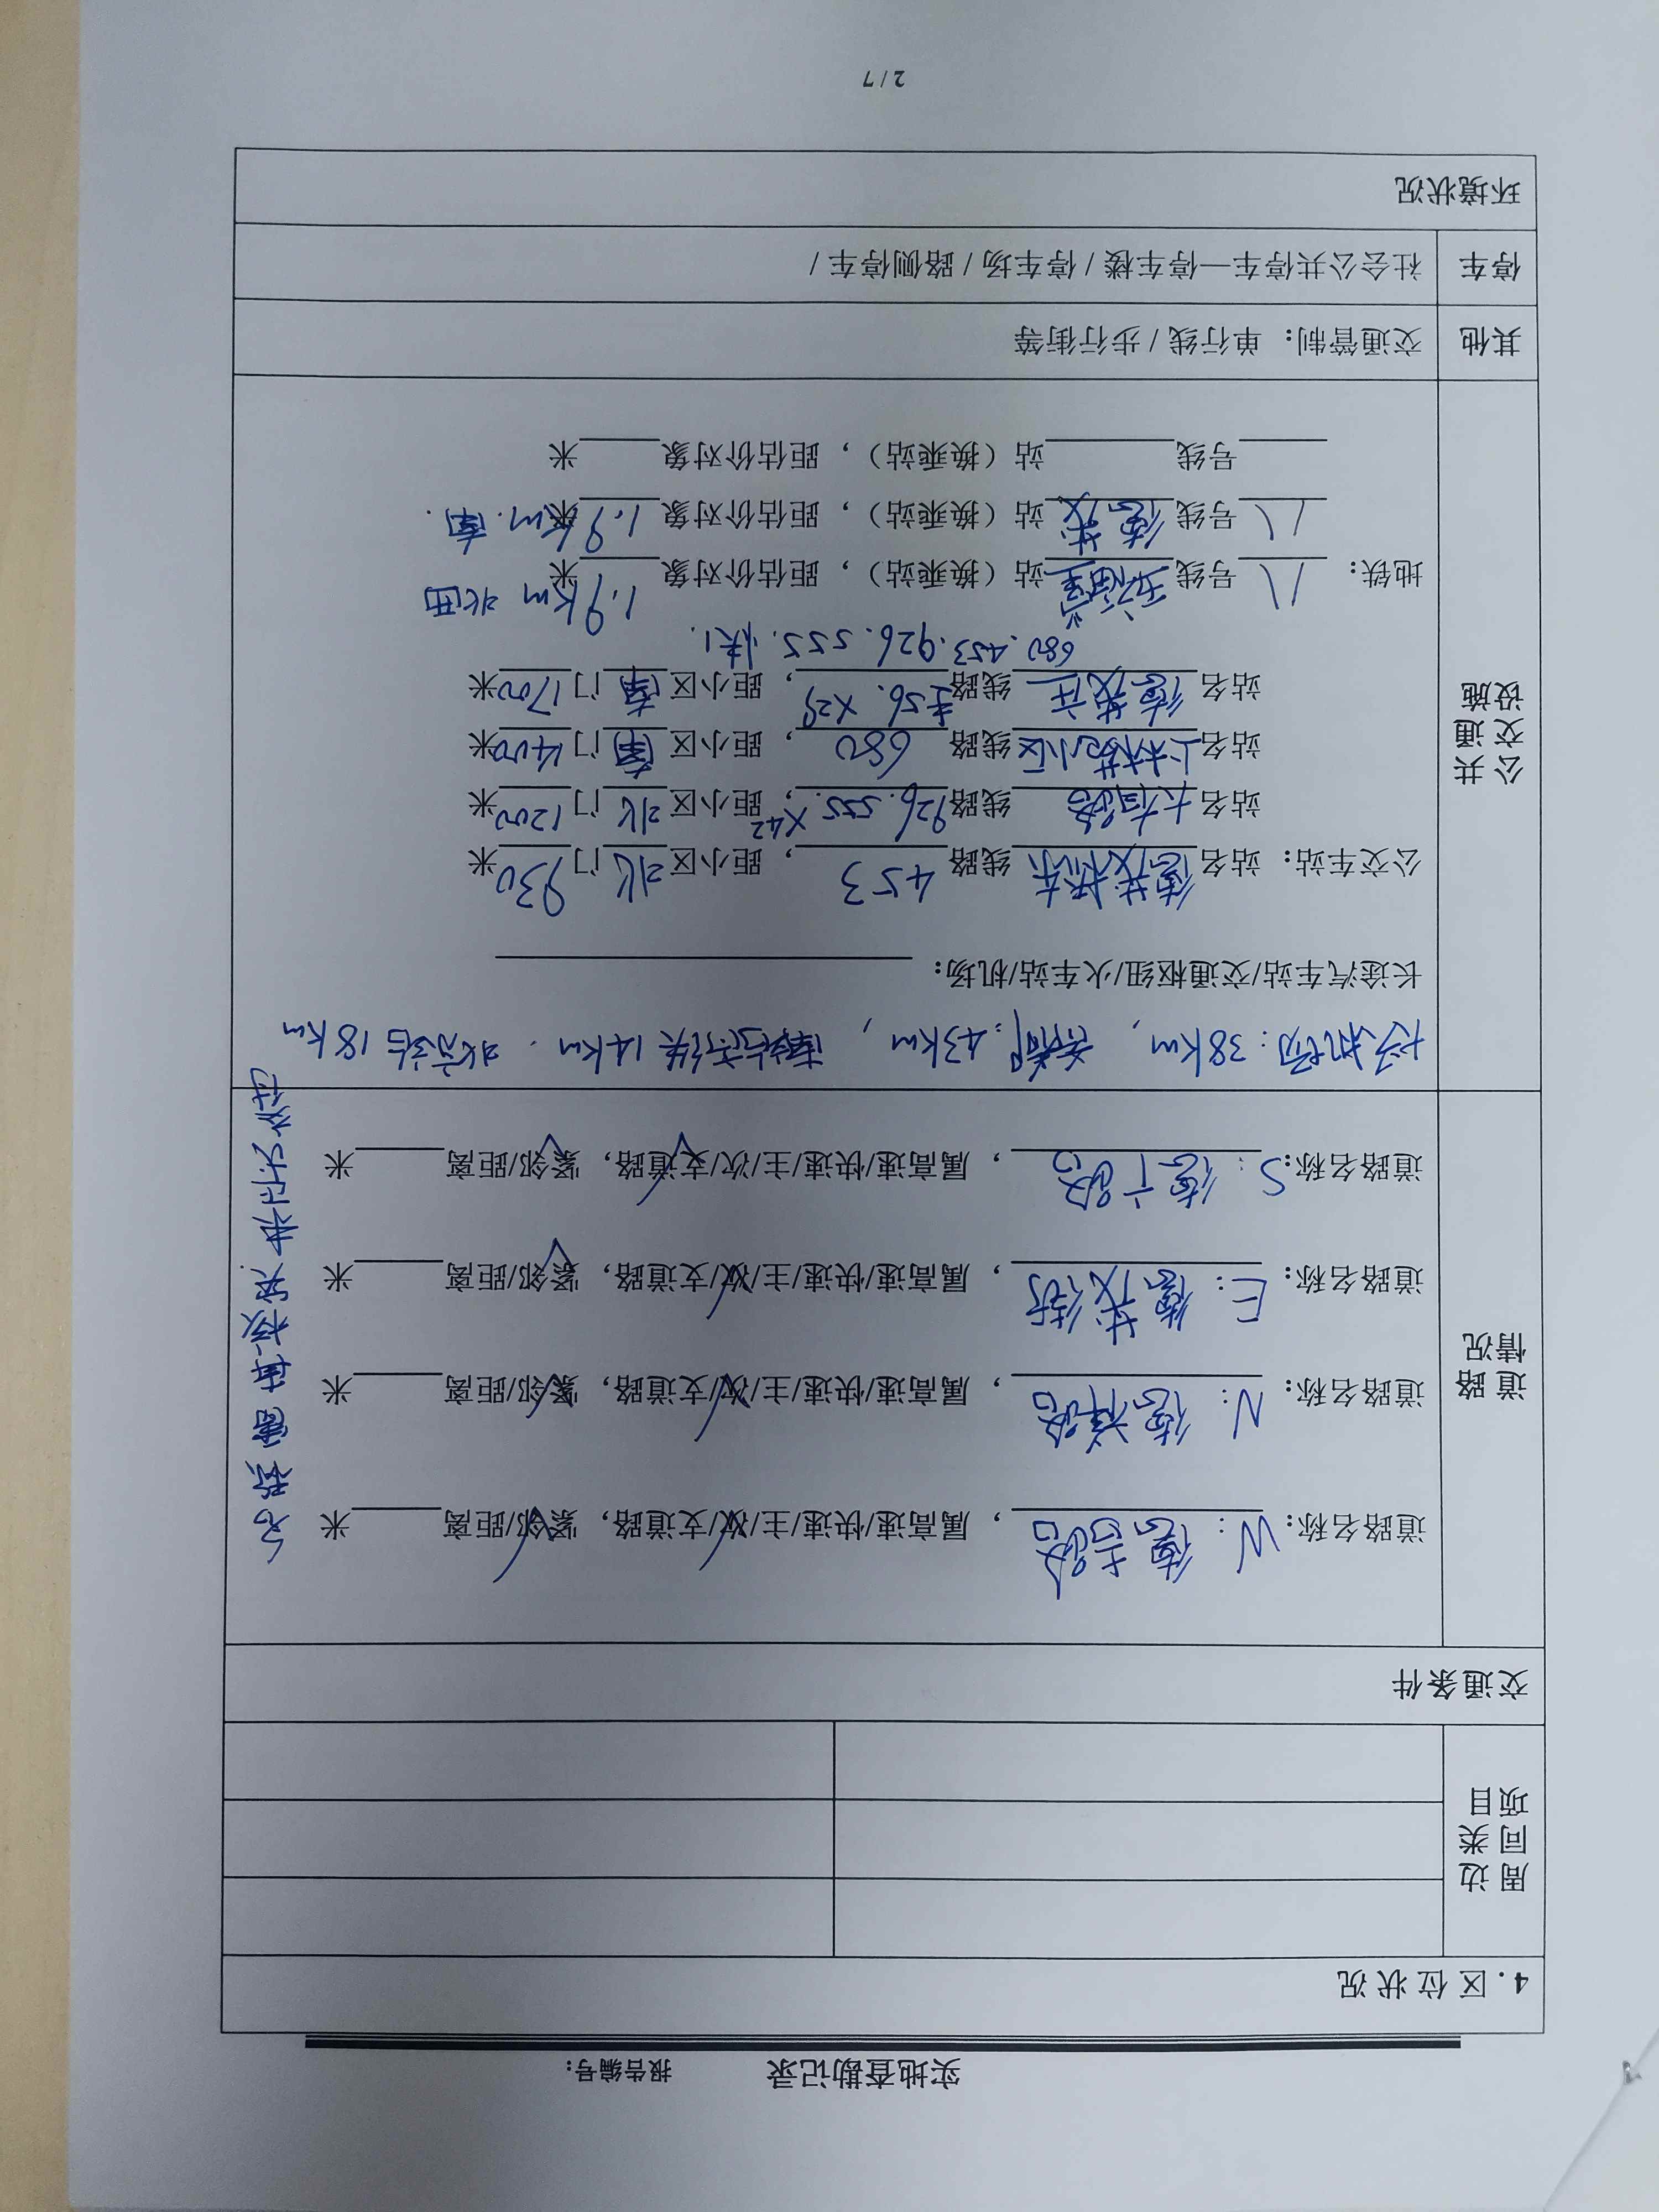 实地查勘记录 报告编号：
4.区位状况
周边同类项目
交通条件
道路情况
道路名称：W：德吉路，属高速/快速/主/次/支道路，紧邻/距离____米
道路名称：N：德祥路，属高速/快速/主/次/支道路，紧邻/距离____米
道路名称：E：德茂街，属高速/快速/主/次/支道路，紧邻/距离____米
道路名称：S：德广路，属高速/快速/主/次/支道路，紧邻/距离____米
名称需再核实
公共交通设施
机场：38km，首都：43km，南站高铁14km．北京站18km
长途汽车站/交通枢纽/火车站/机场：
公交车站：站名德茂桥东线路453，距小区北门930米
站名 线路926.555.X42，距小区北门1200米
站名上林苑小区线路680，距小区南门1400米
站名德茂庄线路 56.X29，距小区南门1700米
680.453.926.555.快1.
地铁：八号线 站（换乘站），距估价对象1.9km米 北西
八号线德茂站（换乘站），距估价对象1.9km米.南.
____号线____站（换乘站），距估价对象____米
其他 交通管制：单行线/步行街等
停车 社会公共停车—停车楼/停车场/路侧停车/
环境状况
2/7